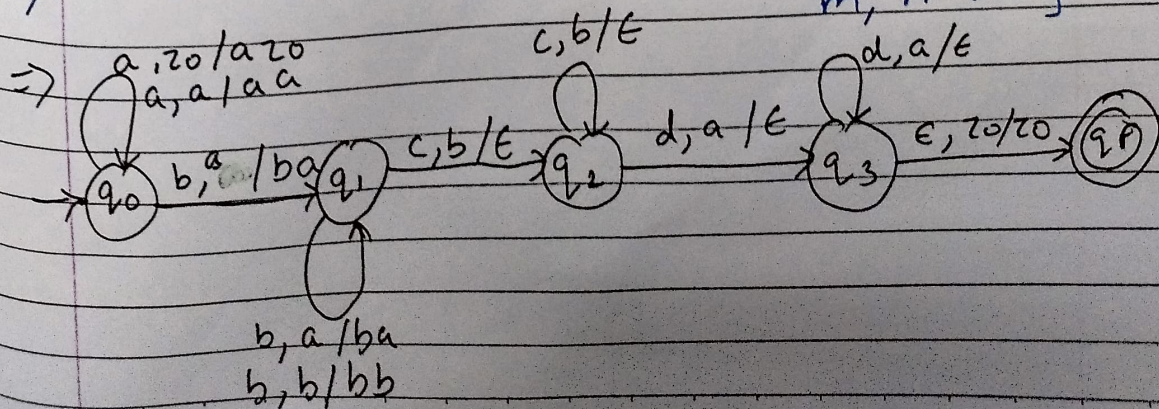 ⇒
a, z0/az0
a, a/aa
q0
b, a/ba
q1
b, a/ba
b, b/bb
c, b/ε
q2
c, b/ε
d, a/ε
q3
d, a/ε
ε, z0/z0
qf